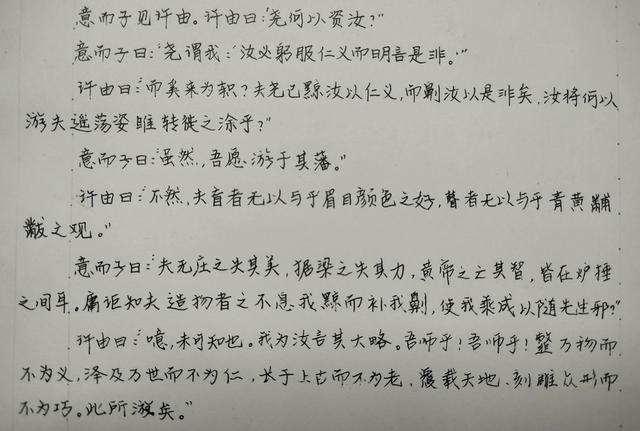 意而子见许由。许由曰："尧何以资汝？"
意而子曰："尧谓我：'汝必躬服仁义而明言是非。'"
许由曰："而奚来为轵？夫尧已黥汝以仁义，而劓汝以是非矣，汝将何以
游夫遥荡姿睢转徙之涂乎？"
意而子曰："虽然，吾愿游于其藩。"
许由曰："不然，夫盲者无以与乎眉目颜色之好，瞽者无以与乎青黄黼
黻之观。"
意而子曰："夫无庄之失其美，据梁之失其力，黄帝之亡其智，皆在炉捶
之间耳。庸讵知夫造物者之不息我黥而补我劓，使我乘成以随先生邪？"
许由曰："噫，未可知也。我为汝言其大略。吾师乎！吾师乎！整万物而
不为义，泽及万世而不为仁，长于上古而不为老，覆载天地、刻雕众形而
不为巧。此所游矣。"